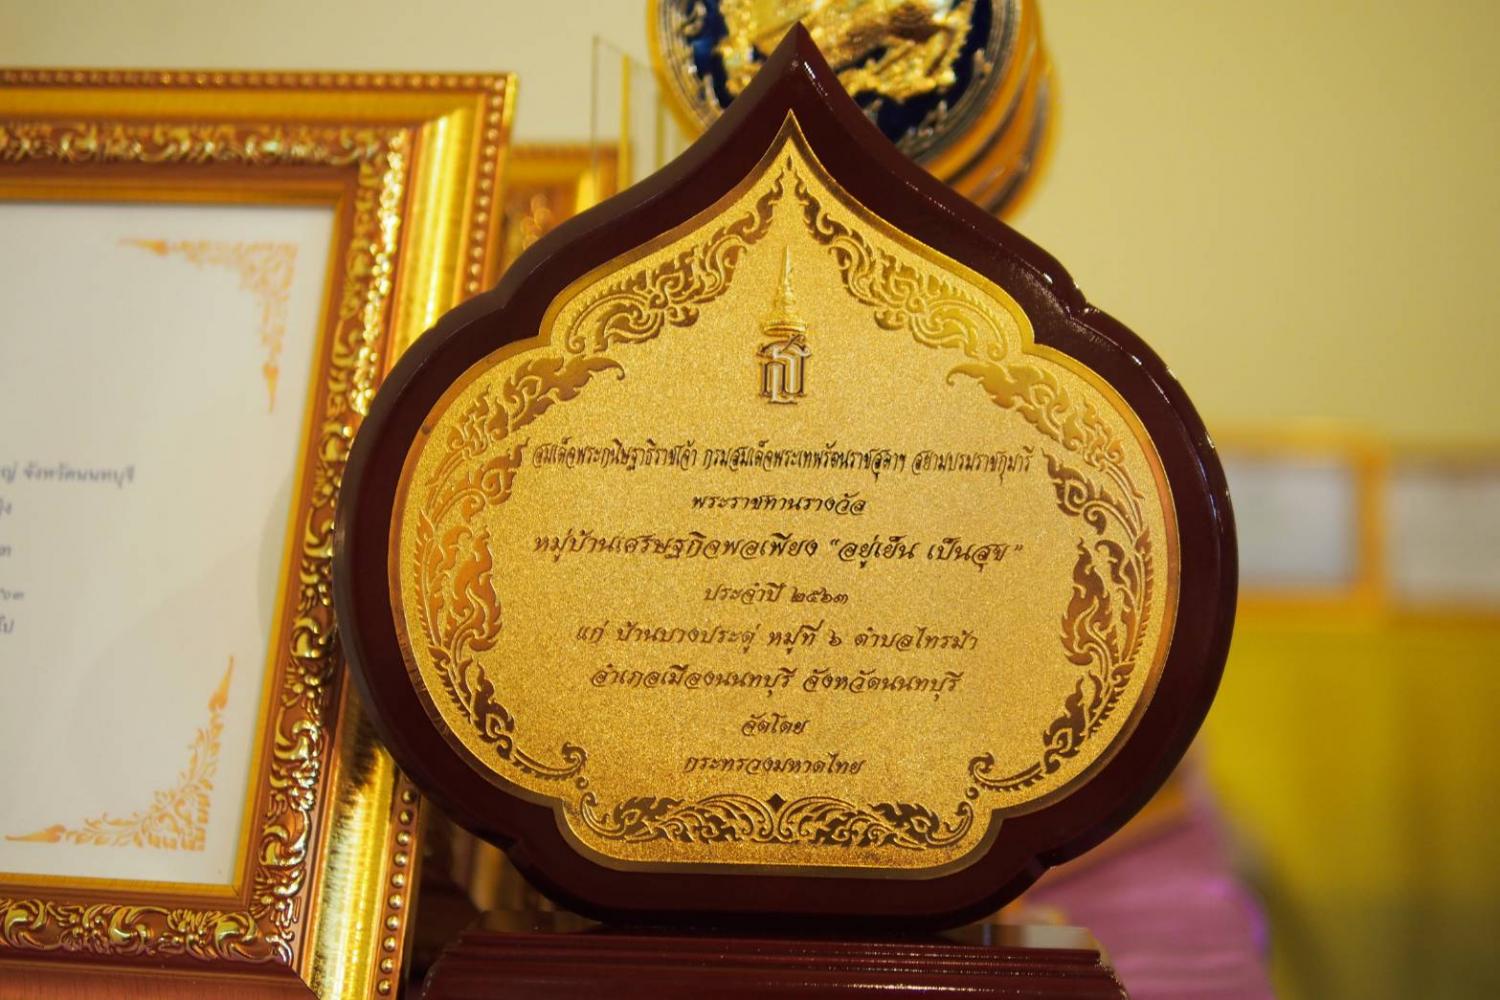 ญ่ จังหวัดนนทบุรี
ส
สมเด็จพระกนิษฐาธิราชเจ้า กรมสมเด็จพระเทพรัตนราชสุดาฯ สยามบรมราชกุมารี
พระราชทานรางวัล
หมู่บ้านเศรษฐกิจพอเพียง “อยู่เย็น เป็นสุข”
ประจำปี ๒๕๖๓
แก่ บ้านบางประดู่ หมู่ที่ ๖ ตำบลไทรม้า
อำเภอเมืองนนทบุรี จังหวัดนนทบุรี
จัดโดย
กระทรวงมหาดไทย